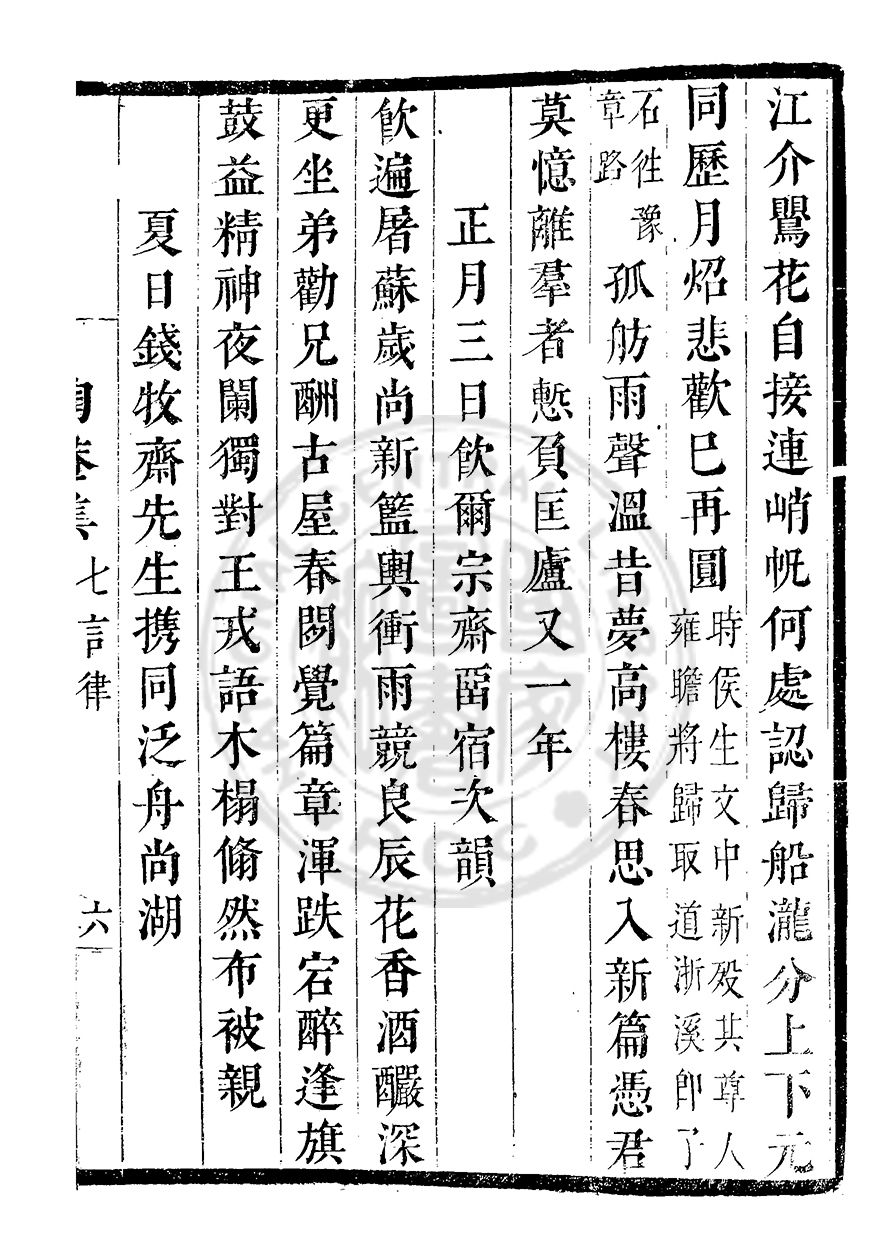 江介鷖花自接連峭帆何處認歸船瀧分上下元
同歷月炤悲歡巳再圓時侯生文中新殁其尊人
雍瞻將歸取道浙溪即了
石徃豫
章路孤舫雨聲溫昔夢高樓春思入新篇憑君
莫憶離羣者慙負匡廬又一年
正月三日飲爾宗齋畱宿次韻
飲遍屠蘇歲尚新籃輿衝雨競良辰花香酒釅深
更坐弟勸兄酬古屋春鬭覺篇章渾跌宕醉逢旗
鼓益精神夜闌獨對王戎語木榻翛然布被親
夏日錢牧齋先生携同泛舟尚湖
陶菴集 七言律 六